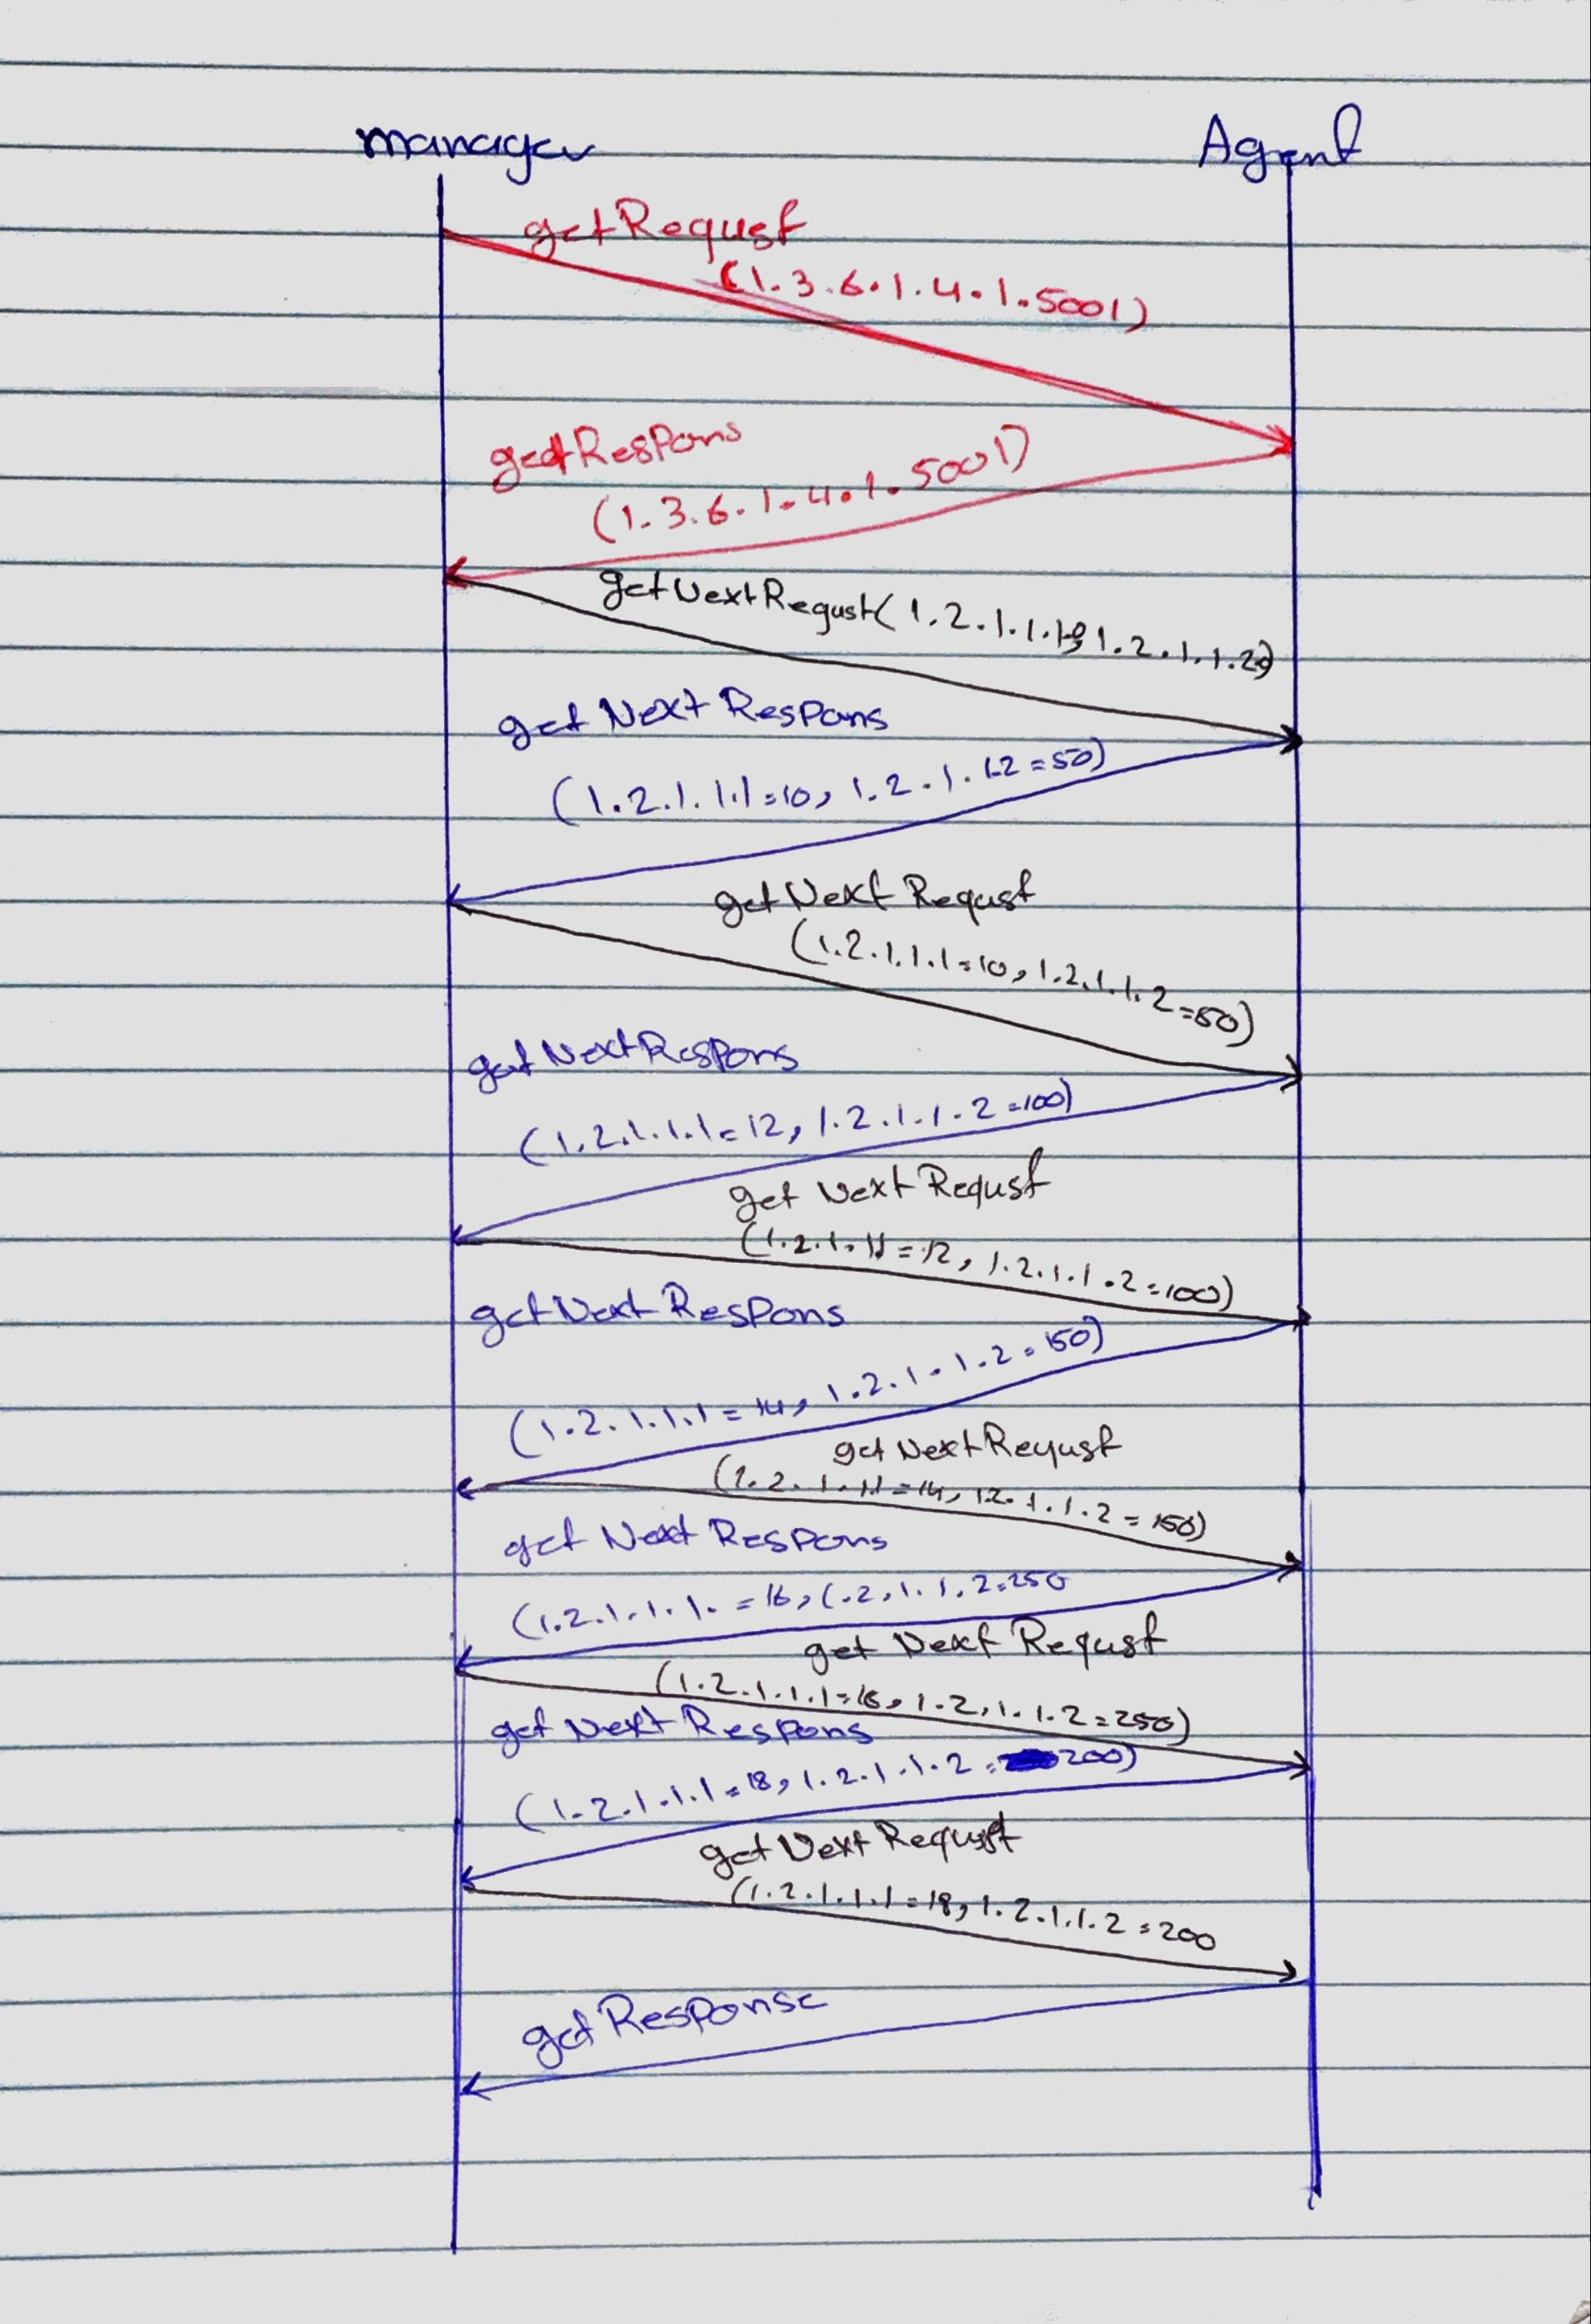 manager Agent
getRequst
(1.3.6.1.4.1.5001)
getRespons
(1.3.6.1.4.1.5001)
getNextRequst(1.2.1.1.1, 1.2.1.1.2)
get Next Respons
(1.2.1.1.1=10, 1.2.1.1.2=50)
getNext Requst
(1.2.1.1.1=10, 1.2.1.1.2=50)
get NextRespons
(1.2.1.1.1=12, 1.2.1.1.2=100)
get Next Requst
(1.2.1.11=12, 1.2.1.1.2=100)
getNext Respons
(1.2.1.1.1=14, 1.2.1.1.2=150)
get Next Requst
(1.2.1.1.1=14, 12.1.1.2=150)
get Next Respons
(1.2.1.1.1.=16, 1.2.1.1.2=250
get Next Requst
(1.2.1.1.1=16, 1.2.1.1.2=250)
get Next Respons
(1.2.1.1.1=18, 1.2.1.1.2=200)
getNext Requst
(1.2.1.1.1=18, 1.2.1.1.2=200
getResponse